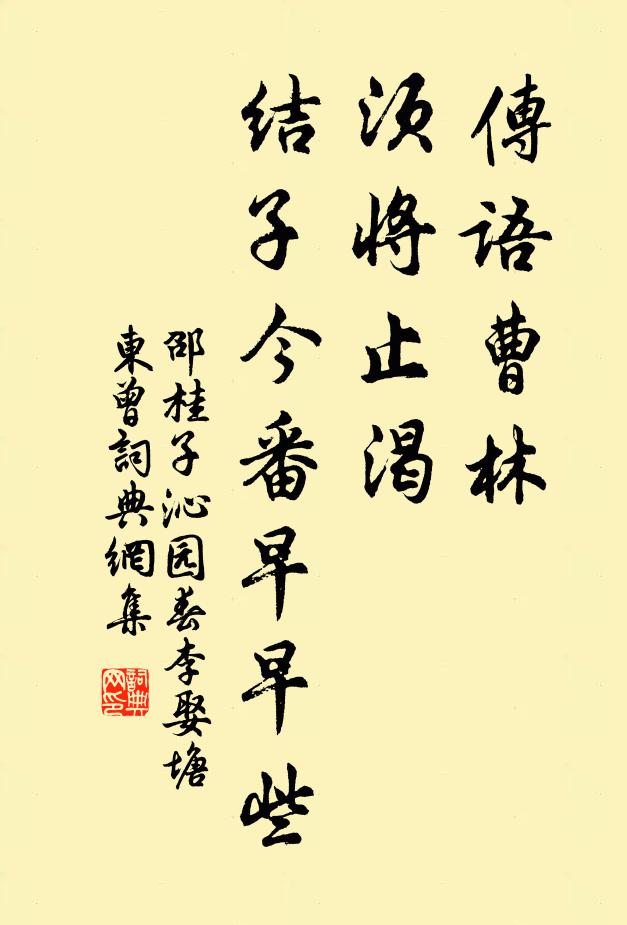 傳語曹林
須將止渴
结子今番早早些
邵桂子沁园春李娶塘
東曾詞典網集
詞典网印